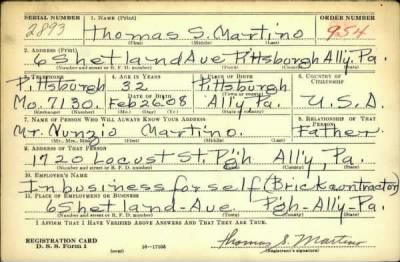 SERIAL NUMBER 1. NAME (Print) ORDER NUMBER
2893 Thomas S. Martino 954
(First) (Middle) (Last)
2. ADDRESS (Print)
6 Shetland Ave Pittsburgh Ally, Pa.
(Number and street or R. F. D. number) (Town) (County) (State)
3. TELEPHONE 4. AGE IN YEARS 5. PLACE OF BIRTH 6. COUNTRY OF CITIZENSHIP
Pittsburgh 32 Pittsburgh
DATE OF BIRTH
Mo. 7130. Feb 26 08 Ally, Pa. U.S.A
(Exchange) (Number) (Mo.) (Day) (Yr.) (Town or county) (State or country)
7. NAME OF PERSON WHO WILL ALWAYS KNOW YOUR ADDRESS 8. RELATIONSHIP OF THAT PERSON
Mr. Nunzio Martino. Father
(Mr., Mrs., Miss) (First) (Middle) (Last)
9. ADDRESS OF THAT PERSON
1720 Locust St. Pgh Ally, Pa.
(Number and street or R. F. D. number) (Town) (County) (State)
10. EMPLOYER'S NAME
In business for self (Brick contractor)
11. PLACE OF EMPLOYMENT OR BUSINESS
6 Shetland-Ave Pgh-Ally-Pa.
(Number and street or R. F. D. number) (Town) (County) (State)
I AFFIRM THAT I HAVE VERIFIED ABOVE ANSWERS AND THAT THEY ARE TRUE.
REGISTRATION CARD
D. S. S. Form 1 (over) Thomas S. Martino
(Registrant's signature)